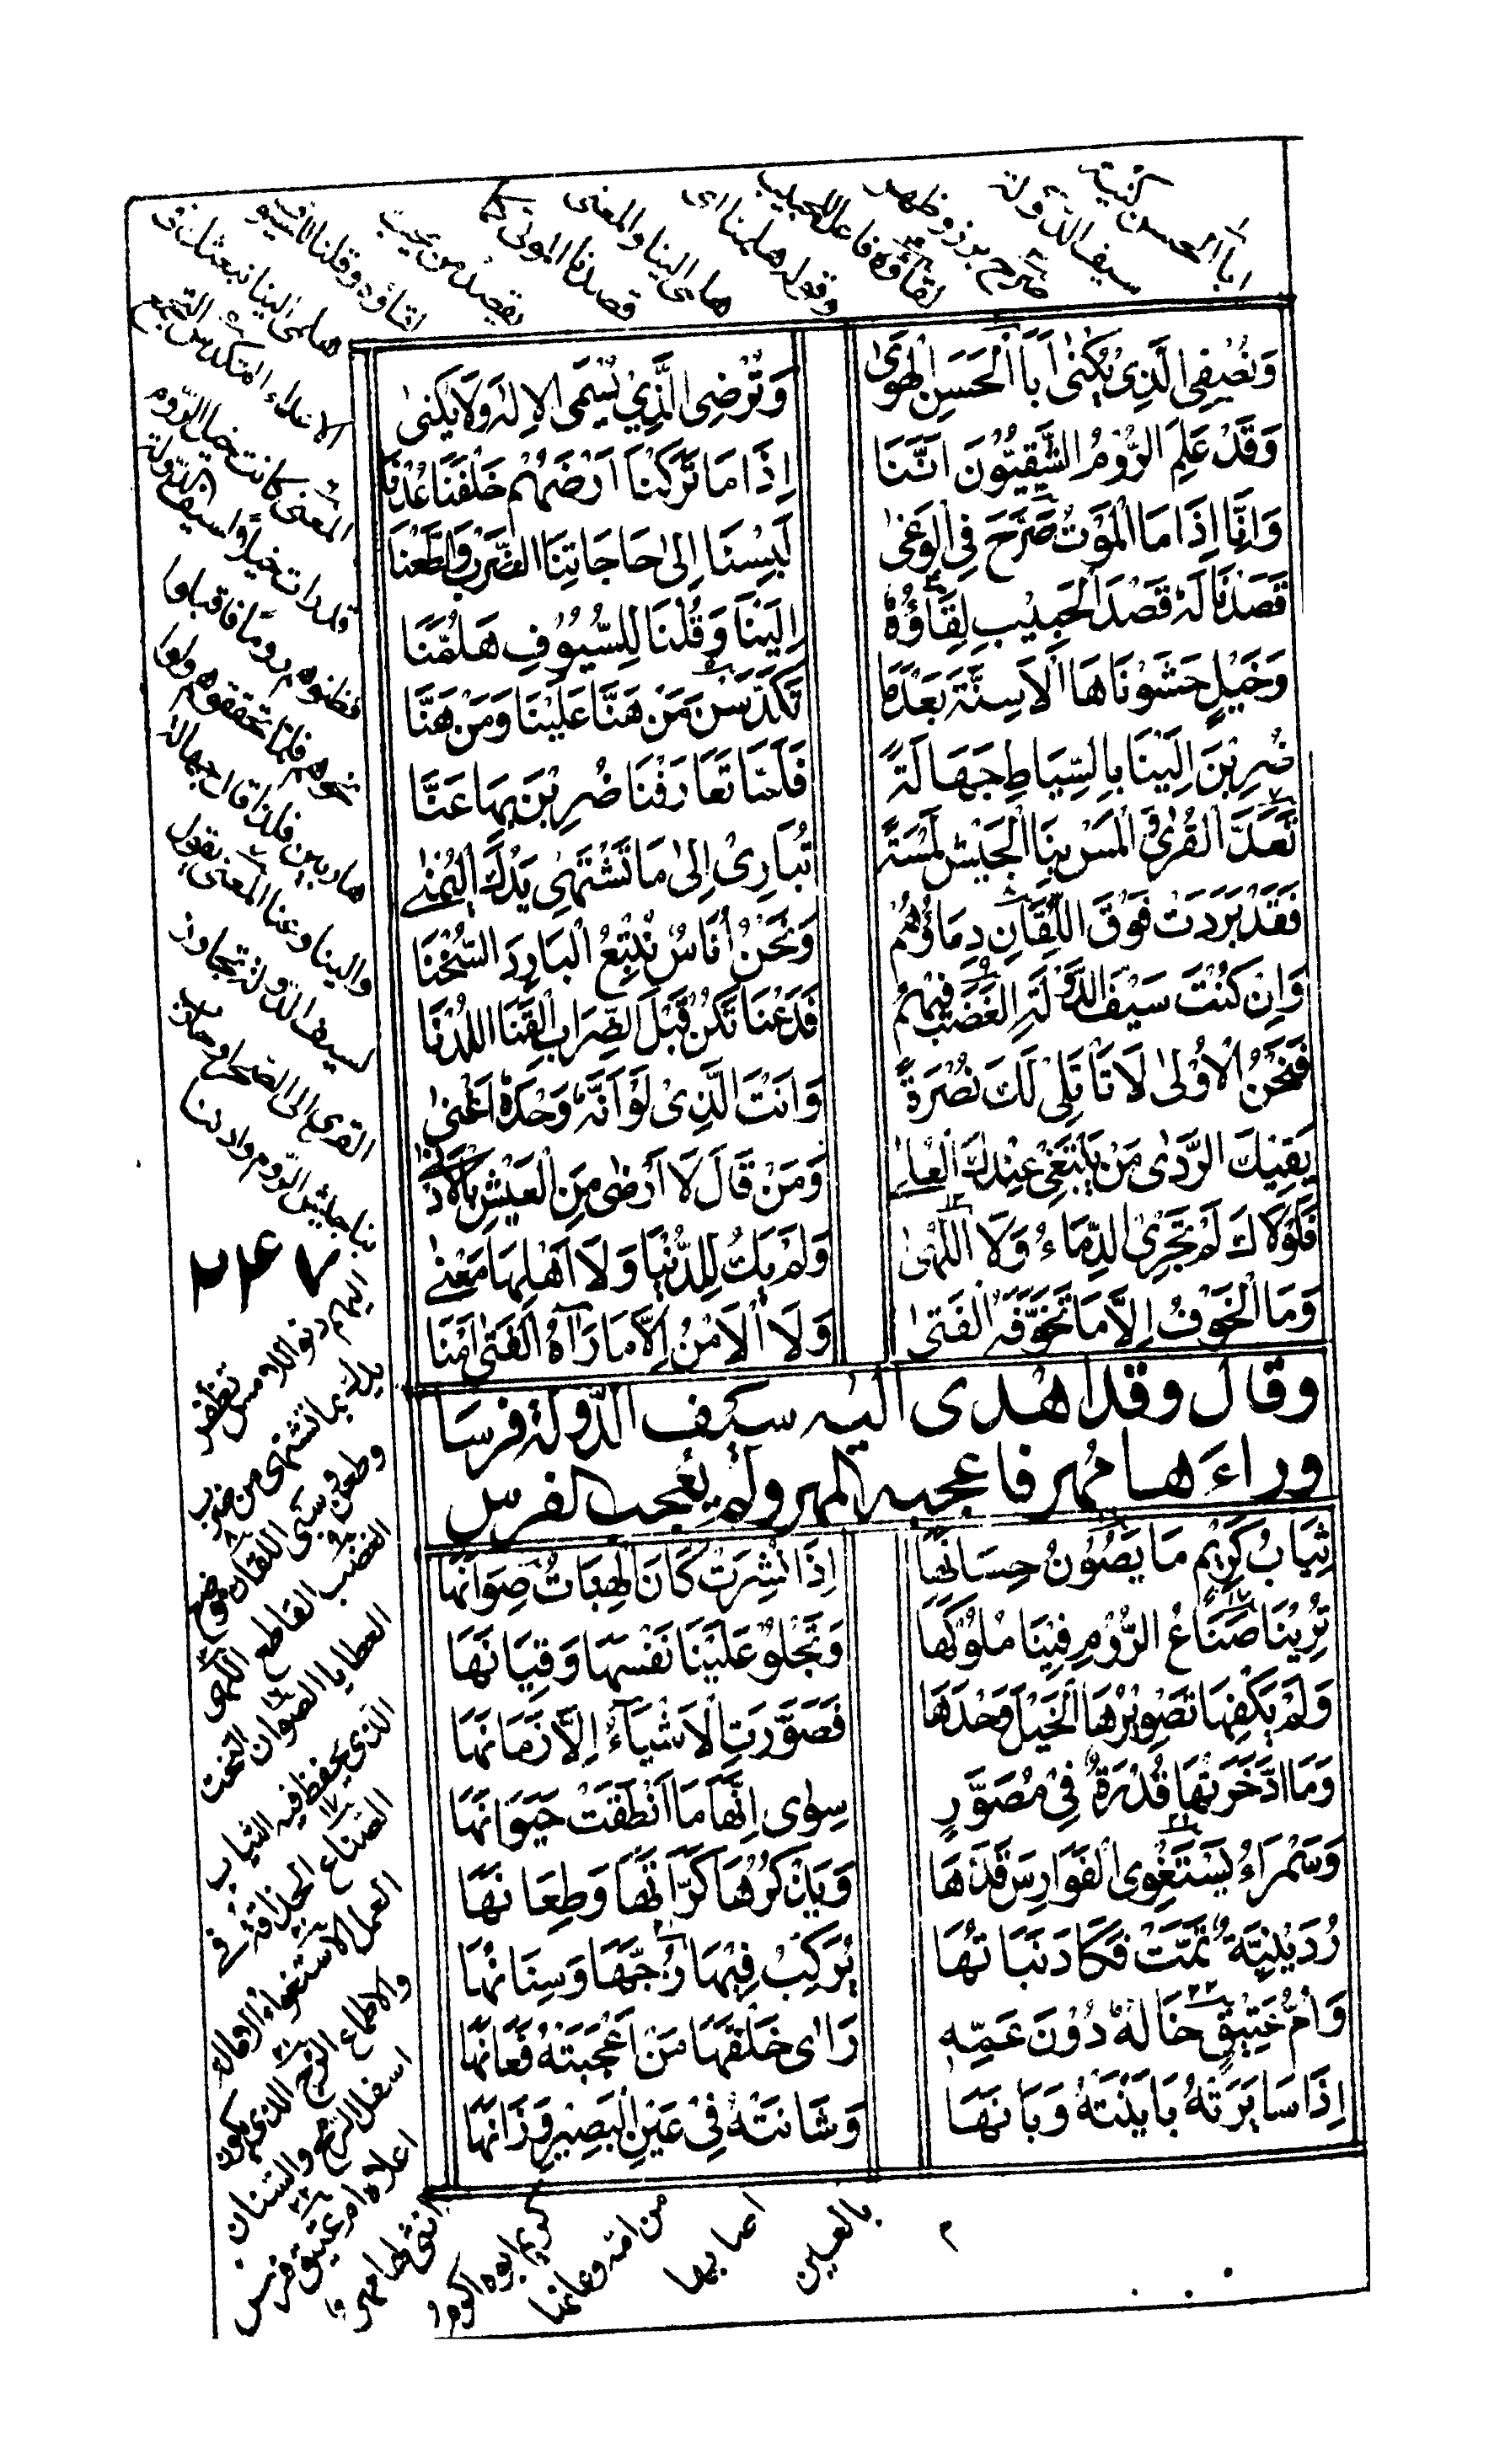 وَنُصْفِي الَّذِي يُكْنٰى أَبَا الْحَسَنِ الْهَوٰى وَتُرْضِي الَّذِي يُسَمَّى الْاِلٰهَ وَلَا يُكْنٰى
وَقَدْ عَلِمَ الرُّوْمُ الشَّقِيُّوْنَ اَنَّنَا اِذَا مَا تَرَكْنَا اَرْضَهُمْ خَلْفَنَا عُدْنَا
وَاِنَّا اِذَا مَا الْمَوْتُ صَرَّحَ فِي الْوَغٰى لَبِسْنَا اِلٰى حَاجَاتِنَا الضَّرْبَ وَالطَّعْنَا
قَصَدْنَا لَهُ قَصْدَ الْحَبِيْبِ لِقَاؤُهُ اِلَيْنَا وَقُلْنَا لِلسُّيُوْفِ هَلُمَّنَا
وَخَيْلٍ حَشَوْنَاهَا الْاَسِنَّةَ بَعْدَمَا تَكَدَّسْنَ مِنْ هَنَّا عَلَيْنَا وَمِنْ هَنَّا
ضُرِبْنَ اِلَيْنَا بِالسِّيَاطِ جَهَالَةً فَلَمَّا تَعَارَفْنَا ضُرِبْنَ بِهَا عَنَّا
تَعَدَّ الْقُرٰى وَالْمَسْ بِنَا الْجَيْشَ لَمْسَةً تُبَارِيْ اِلٰى مَا تَشْتَهِي يَدُكَ الْيُمْنٰے
فَقَدْ بَرَدَتْ فَوْقَ اللُّقَانِ دِمَاؤُهُمْ وَنَحْنُ اُنَاسٌ نُتْبِعُ الْبَارِدَ السُّخْنَا
وَاِنْ كُنْتَ سَيْفَ الدَّوْلَةِ الْعَضْبَ فِيْهِمُ فَدَعْنَا نَكُنْ قَبْلَ الضِّرَابِ الْقَنَا اللُّدْنَا
فَنَحْنُ الْاُوْلٰى لَا نَأْتَلِي لَكَ نُصْرَةً وَاَنْتَ الَّذِيْ لَوْ اَنَّهُ وَحْدَهُ اَغْنٰى
يَقِيْكَ الرَّدٰى مَنْ يَبْتَغِي عِنْدَكَ الْعُلٰے وَمَنْ قَالَ لَا اَرْضٰى مِنَ الْعَيْشِ بِالْاَدْنٰى
فَلَوْلَاكَ لَمْ تَجْرِ الدِّمَاءُ وَلَا اللُّهٰى وَلَمْ يَكُ لِلدُّنْيَا وَلَا اَهْلِهَا مَعْنٰے
وَمَا الْخَوْفُ اِلَّا مَا تَخَوَّفَهُ الْفَتٰى وَلَا الْاَمْنُ اِلَّا مَا رَآهُ الْفَتٰى اَمْنَا
وقال وقد اهدى اليه سيف الدّولة فرسا
وراءها مُهر فاعجبه المهر ولم يُعجب الفرس
ثِيَابُ كَرِيْمٍ مَا يَصُوْنُ حِسَانَهَا اِذَا نُشِرَتْ كَانَ الْهِبَاتُ صِوَانَهَا
تُرِيْنَا صَنَاعُ الرُّوْمِ فِيْنَا مُلُوْكَهَا وَتَجْلُوْ عَلَيْنَا نَفْسَهَا وَقِيَانَهَا
وَلَمْ يَكْفِهَا تَصْوِيْرُهَا الْخَيْلَ وَحْدَهَا فَصَوَّرَتِ الْاَشْيَآءَ اِلَّا زَمَانَهَا
وَمَا ادَّخَرَتْهَا قُدْرَةً فِيْ مُصَوِّرٍ سِوٰى اِنَّهَا مَا اَنْطَقَتْ حَيَوَانَهَا
وَسَمْرَاءُ يَسْتَغْوِي الْفَوَارِسَ قَدُّهَا وَيُذْكِرُهَا كَرَّاتِهَا وَطِعَانَهَا
رُدَيْنِيَّةٌ تَمَّتْ فَكَادَ نَبَاتُهَا يُرَكِّبُ فِيْهَا زُجَّهَا وَسِنَانَهَا
وَاُمُّ عَتِيْقٍ خَالُهُ دُوْنَ عَمِّهٖ رَاٰى خَلْقَهَا مَنْ اَعْجَبَتْهُ فَعَانَهَا
اِذَا سَايَرَتْهُ بَايَنَتْهُ وَبَانَهَا وَشَانَتْهُ فِيْ عَيْنِ الْبَصِيْرِ وَزَانَهَا
ابا الحسن كنية
سيف الدّولة
صرح برز وظهر
لقاؤه فاعل الحبيب
وقوله هلمنا اى
هلمى الينا والمعنى
قصدنا الموت كما
يقصد من يحب
لقاؤه وقلنا للسيوف
المعنى كانت خيل الرّوم
هاربين فلذا قال جهالة
والينا وعنا المعنى يقول
لسيف الدولة تجاوز
القرى الى الصحارى
٢٤٧
يدك بما تشتهى من ضرب
وطعن
العضب القاطع اللهى
العطايا الصوان التخت
الذي يحفظ فيه الثياب
الصناع الحاذقة فى
العمل الاستغواء الامالة
والاطماع الزج الذي يكون
اسفل الرمح والسنان
اعلاه ام عتيق فرس
انثى لها مهر
كريم ابوه اكرم
من امه وعانها
اصابها
بالعين